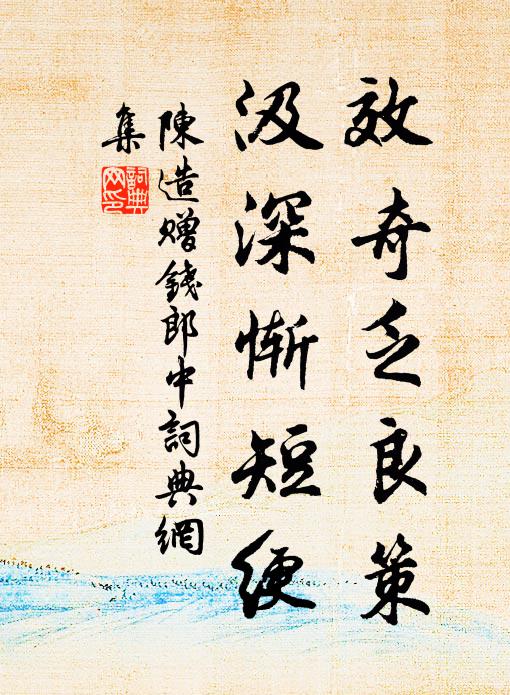 效奇乏良策
汲深惭短绠
陳造贈錢郎中詞典網
集
詞典
网印